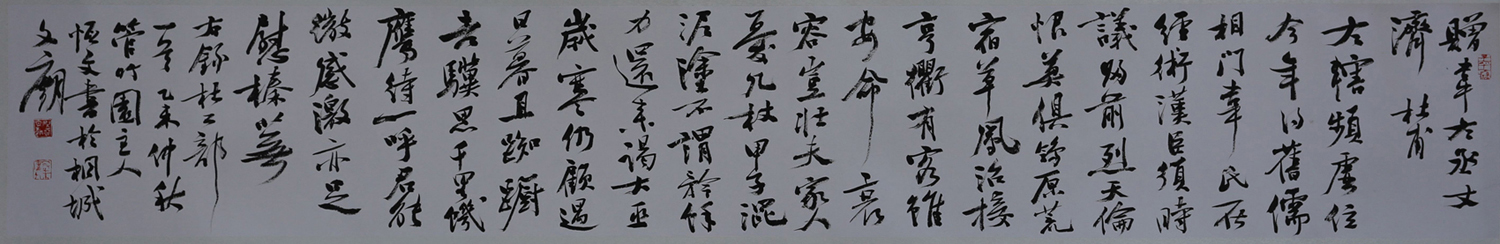 贈韋左丞丈
濟 杜甫
左轄頻虛位
今年得舊儒
相門韋氏在
經術漢臣須時
議歸前烈天倫
恨莫俱鴒原荒
宿草鳳沼接
亨衢有客雖
安命衰
容豈壯夫家人
憂几杖甲子混
泥塗不謂矜餘
力還來謁大巫
歲寒仍顧遇
日暮且踟躕
老驥思千里饑
鷹待一呼君能
微感激亦足
慰榛蕪
右錄杜工部
一章乙未仲秋
管竹園主人
恒文書於桐城
文廟